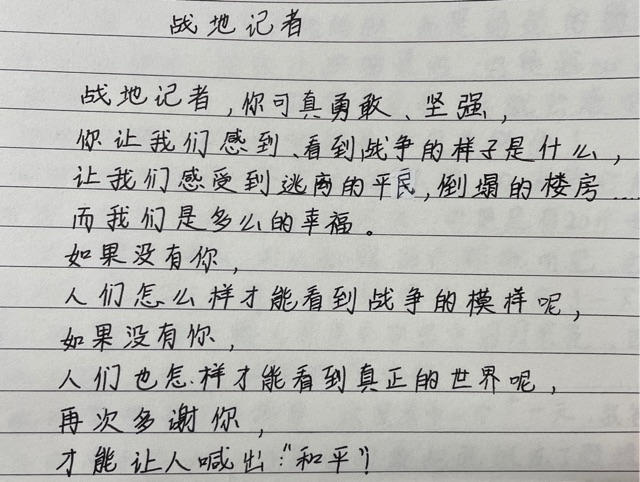 战地记者
战地记者，你可真勇敢、坚强，
你让我们感到、看到战争的样子是什么，
让我们感受到逃离的平民，倒塌的楼房……
而我们是多么的幸福。
如果没有你，
人们怎么样才能看到战争的模样呢，
如果没有你，
人们也怎样才能看到真正的世界呢，
再次多谢你，
才能让人喊出：“和平”！